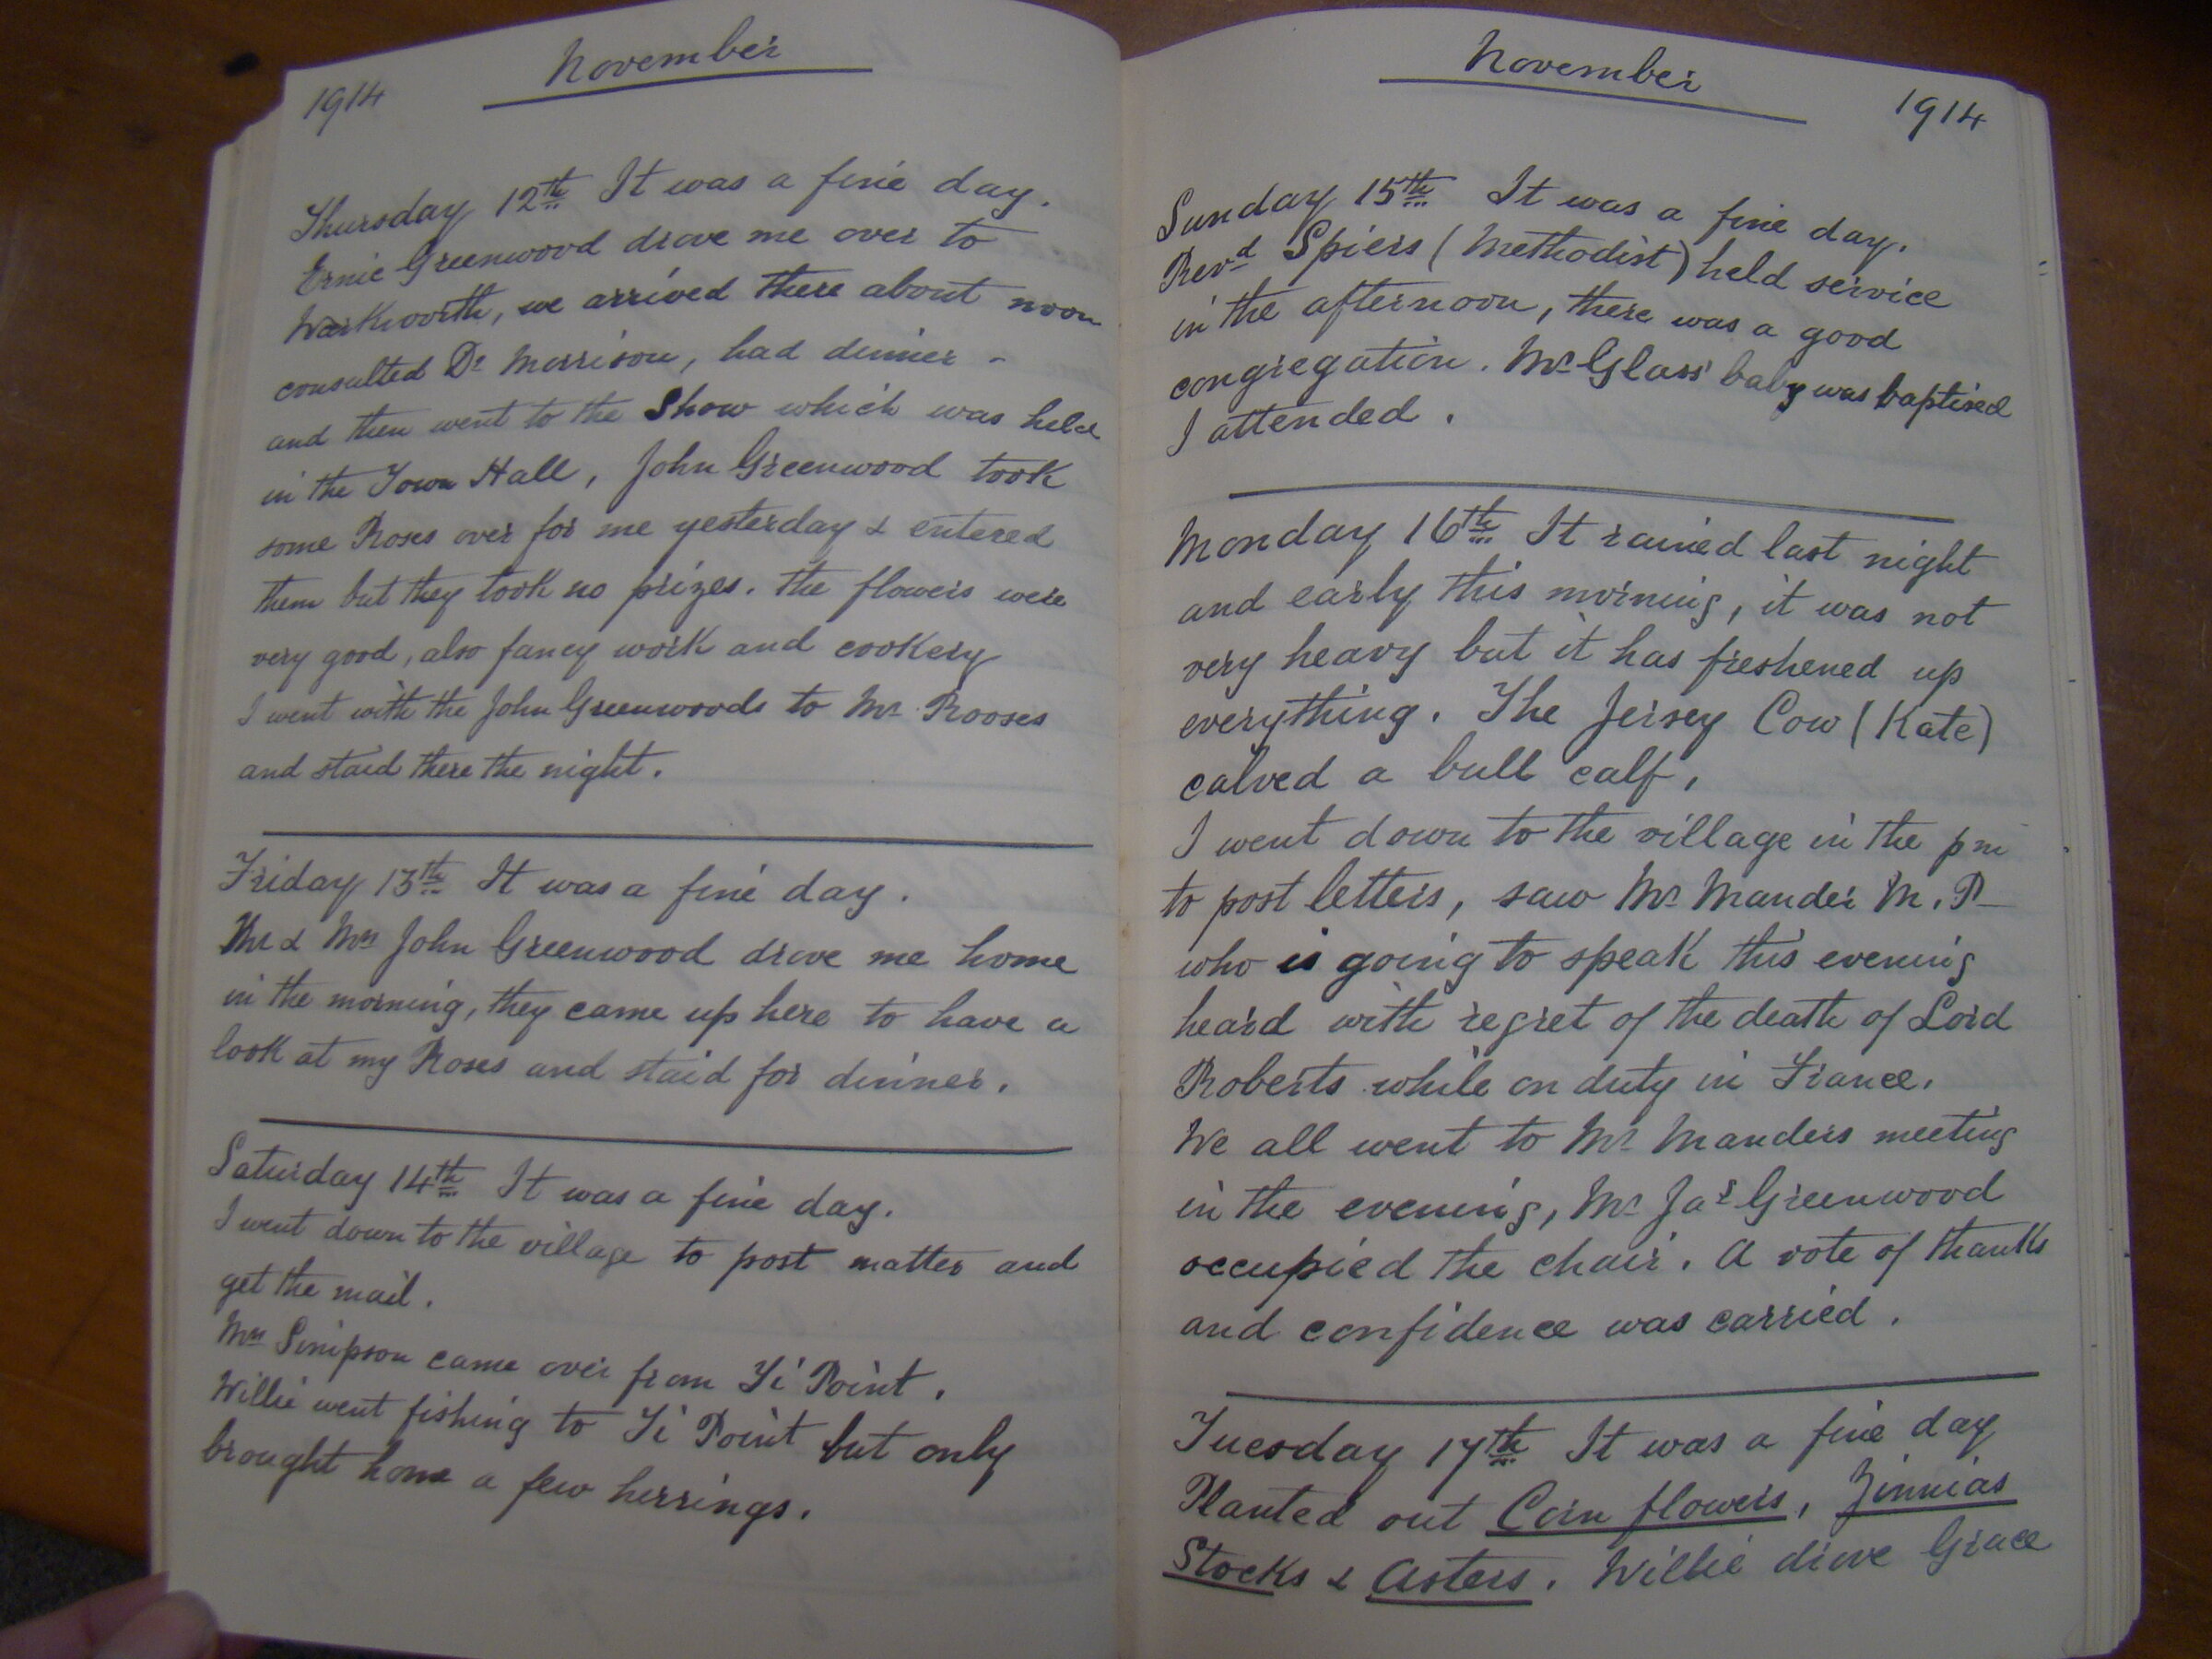 1914
November
Thursday 12th It was a fine day.
Ernie Greenwood drove me over to
Warkworth, we arrived there about noon
consulted Dr Morrison, had dinner -
and then went to the Show which was held
in the Town Hall, John Greenwood took
some Roses over for me yesterday & entered
them but they took no prizes. The flowers were
very good, also fancy work and cookery
I went with the John Greenwoods to Mr Rooses
and staid there the night.
Friday 13th It was a fine day.
Mr & Mrs John Greenwood drove me home
in the morning, they came up here to have a
look at my Roses and staid for dinner.
Saturday 14th It was a fine day.
I went down to the village to post matter and
get the mail.
Mrs Simpson came over from Ti Point.
Willie went fishing to Ti Point but only
brought home a few herrings.
November
1914
Sunday 15th It was a fine day.
Revd Spiers (Methodist) held service
in the afternoon, there was a good
congregation. Mr Glass' baby was baptised
I attended.
Monday 16th It rained last night
and early this morning, it was not
very heavy but it has freshened up
everything. The Jersey Cow (Kate)
calved a bull calf,
I went down to the village in the pm
to post letters, saw Mr Mander M.P-
who is going to speak this evening
heard with regret of the death of Lord
Roberts while on duty in France.
We all went to Mr Manders meeting
in the evening, Mr Jas Greenwood
occupied the chair. A vote of thanks
and confidence was carried.
Tuesday 17th It was a fine day
Planted out Corn flowers, Zinnias
Stocks & Asters. Willie drove Grace